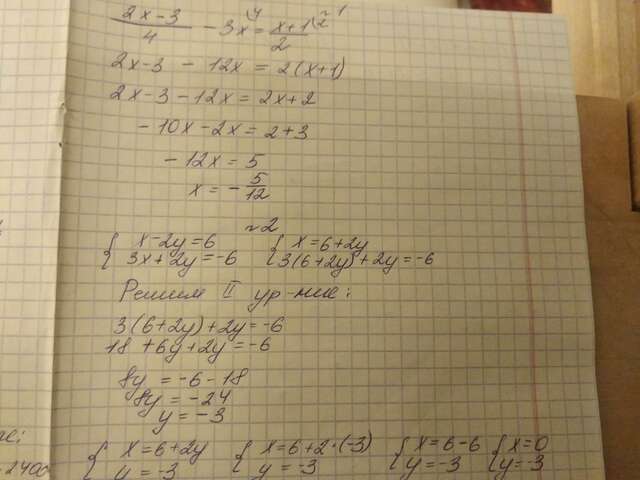 № 1
(2x-3)/4 - 3x\4 = (x+1)/2\2
2x-3 - 12x = 2(x+1)
2x-3-12x = 2x+2
-10x-2x = 2+3
-12x = 5
x = -5/12
№ 2
{ x-2y=6 { x=6+2y
3x+2y=-6 3(6+2y)+2y=-6
Решим II ур-ние:
3(6+2y)+2y=-6
18+6y+2y=-6
8y = -6-18
8y = -24
y = -3
{ x=6+2y { x=6+2·(-3) { x=6-6 { x=0
y=-3 y=-3 y=-3 y=-3
2400